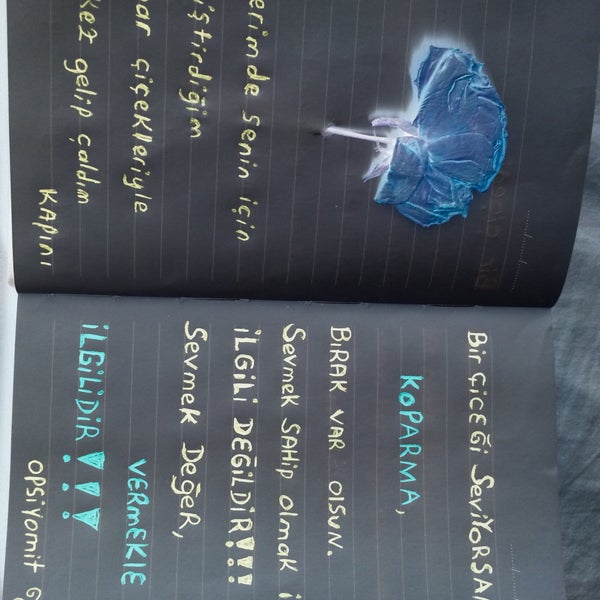 erimde senin için
iştirdiğim
ar çiçekleriyle
kez gelip çaldım
KAPINI
Bir ÇİÇEĞİ SevİYORSA
KOPARMA,
BIRAK VAR OLSUN.
Sevmek SAHİP olmak
İLGİLİ DEĞİLDİR!!!
Sevmek DeĞeR,
VERMEKLE
İLGİLİDİR!!!
OPSİYOMİT